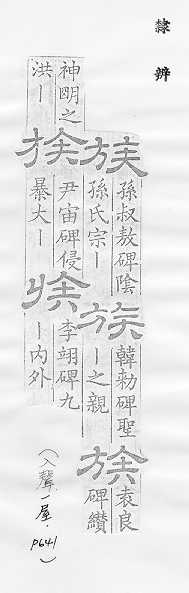 隸辨
族
孫叔敖碑陰
孫氏宗丨
族
韓勑碑聖
丨之親
族
袁良
碑纉
神明之
洪丨
族
尹宙碑侵
暴大丨
族
李翊碑九
丨内外
(入聲一屋. P641)